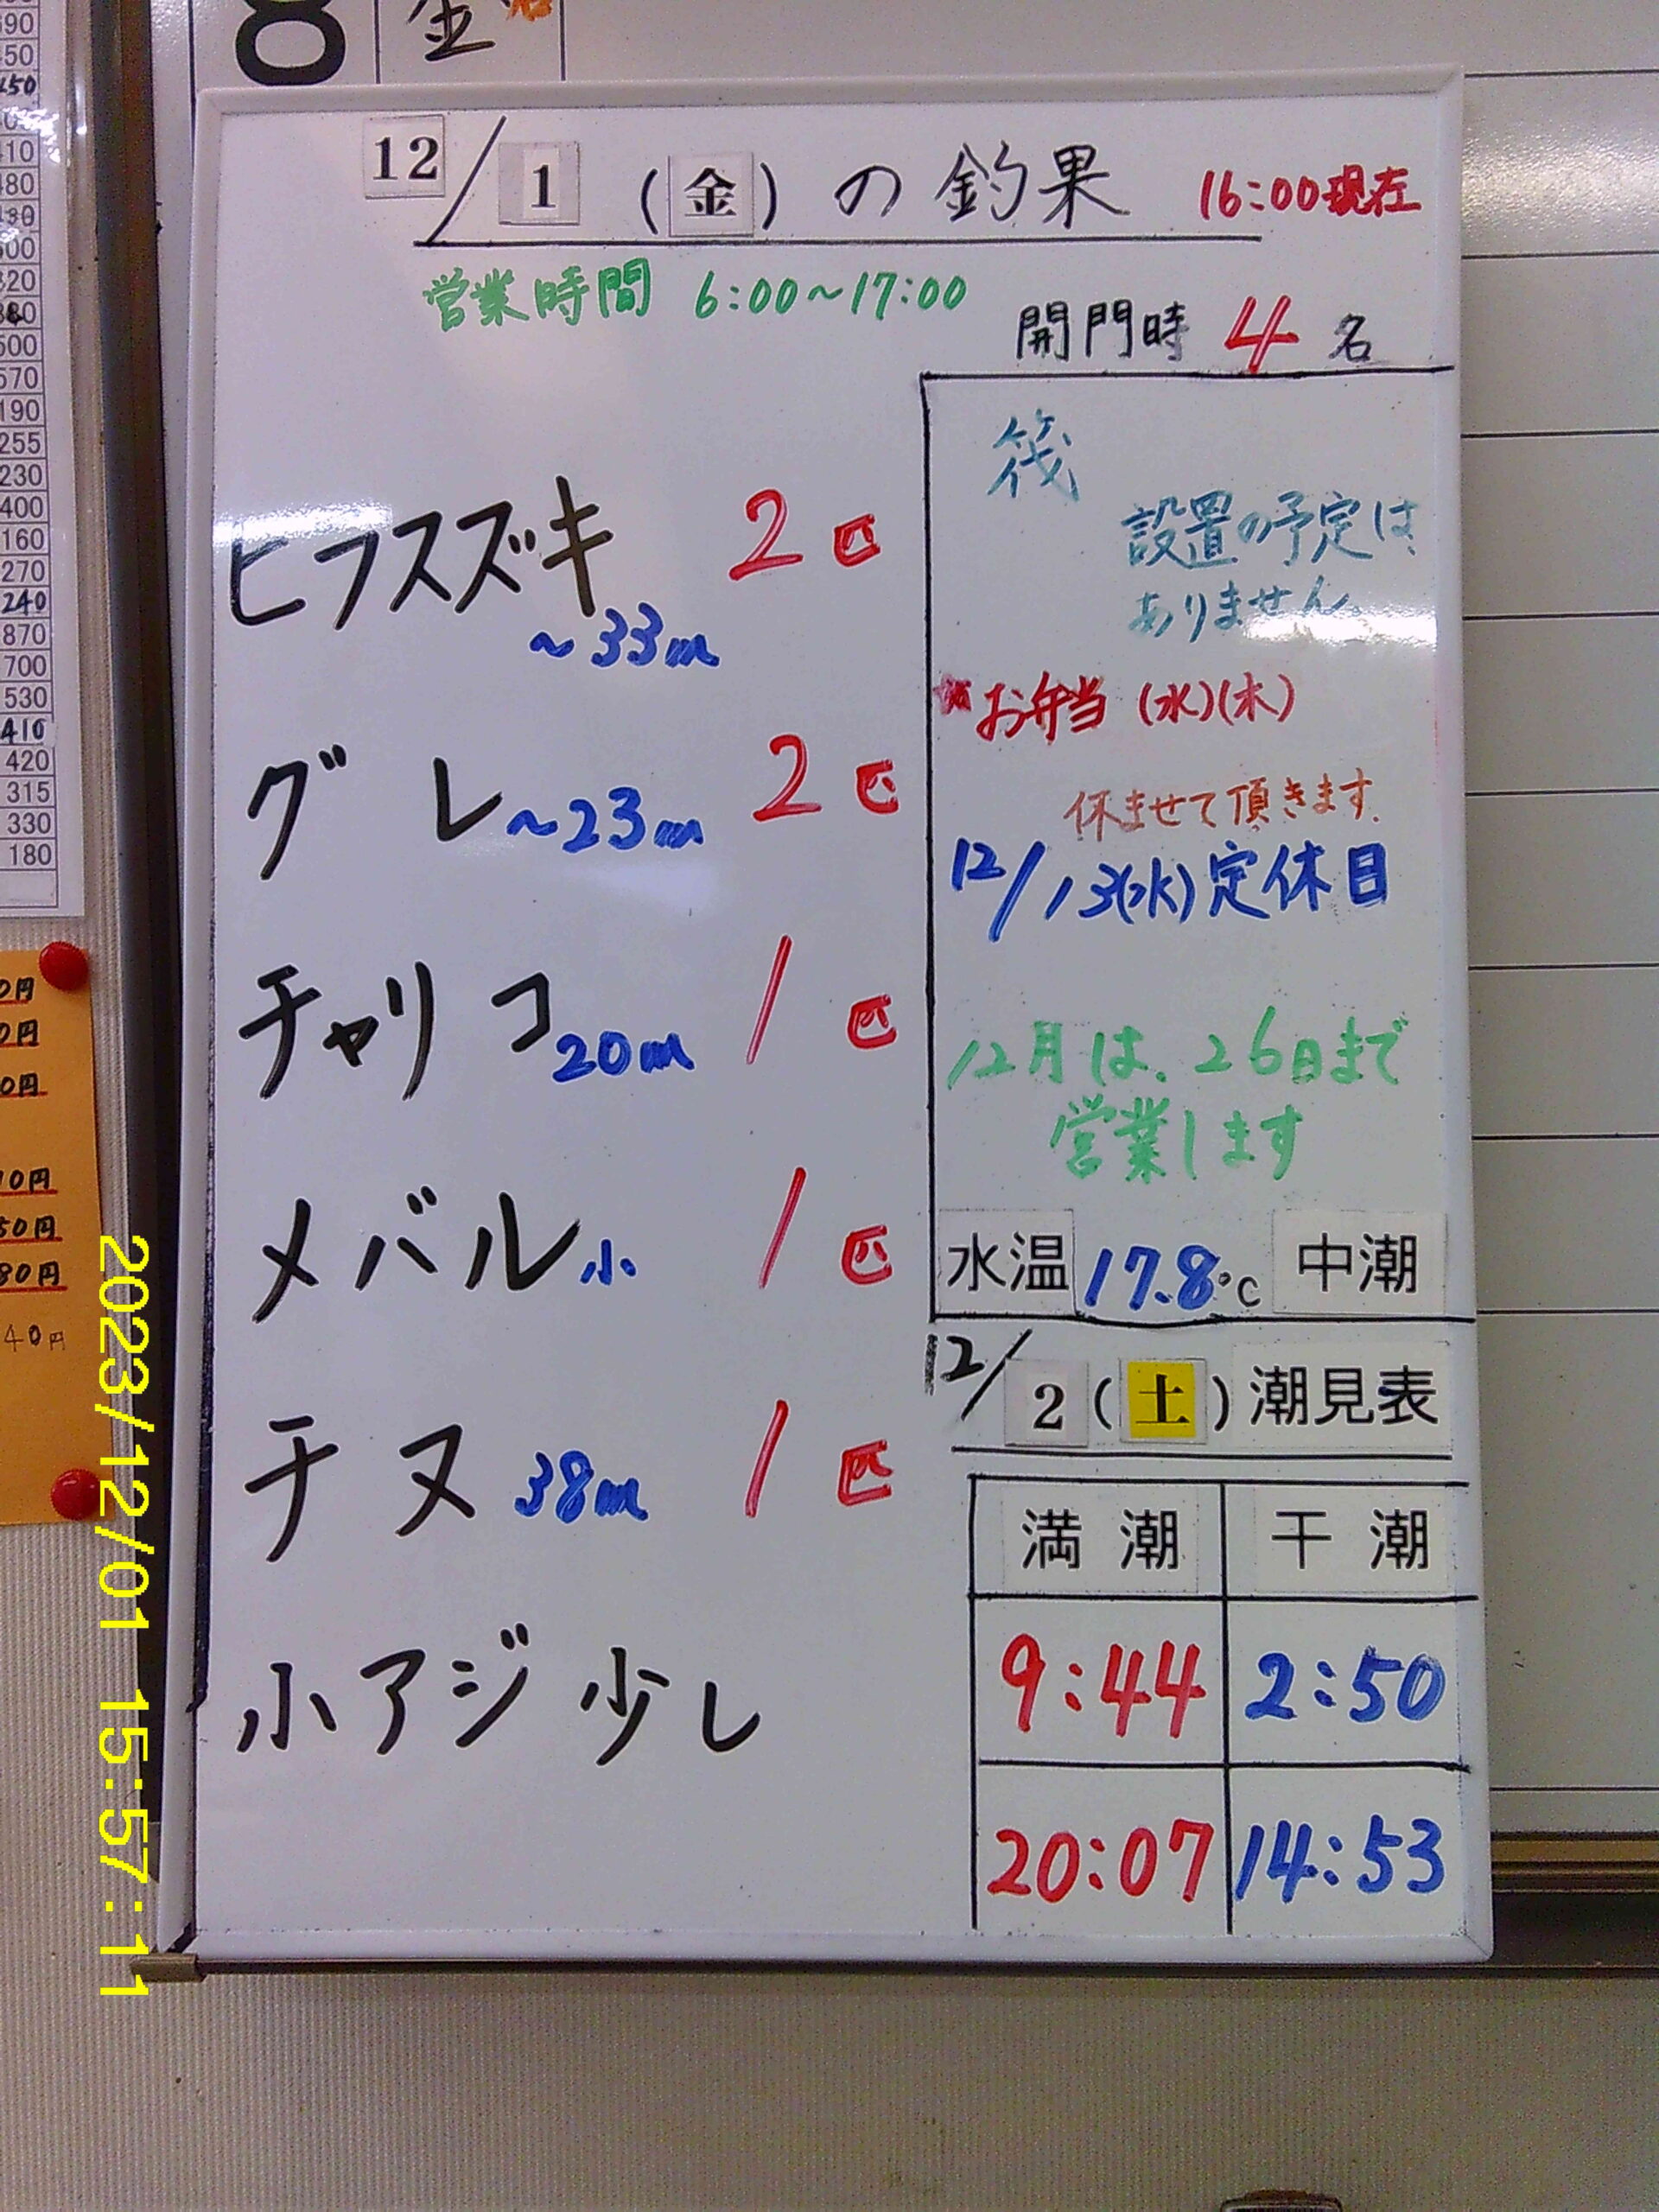 金
12/1(金)の釣果 16:00現在
営業時間 6:00~17:00
開門時 4名
ヒラスズキ 2匹
~33㎝
グレ~23㎝ 2匹
チャリコ20㎝ 1匹
メバル小 1匹
チヌ38㎝ 1匹
小アジ少し
筏
設置の予定は
ありません。
お弁当(水)(木)
休ませて頂きます。
12/13(水)定休日
12月は、26日まで
営業します
水温 17.8℃ 中潮
12/2(土)潮見表
満潮 干潮
9:44 2:50
20:07 14:53
690
450
450
410
480
600
320
500
570
190
255
230
400
160
270
240
870
700
530
410
420
315
330
180
0円
0円
0円
10円
50円
80円
40円
2023/12/01 15:57:11